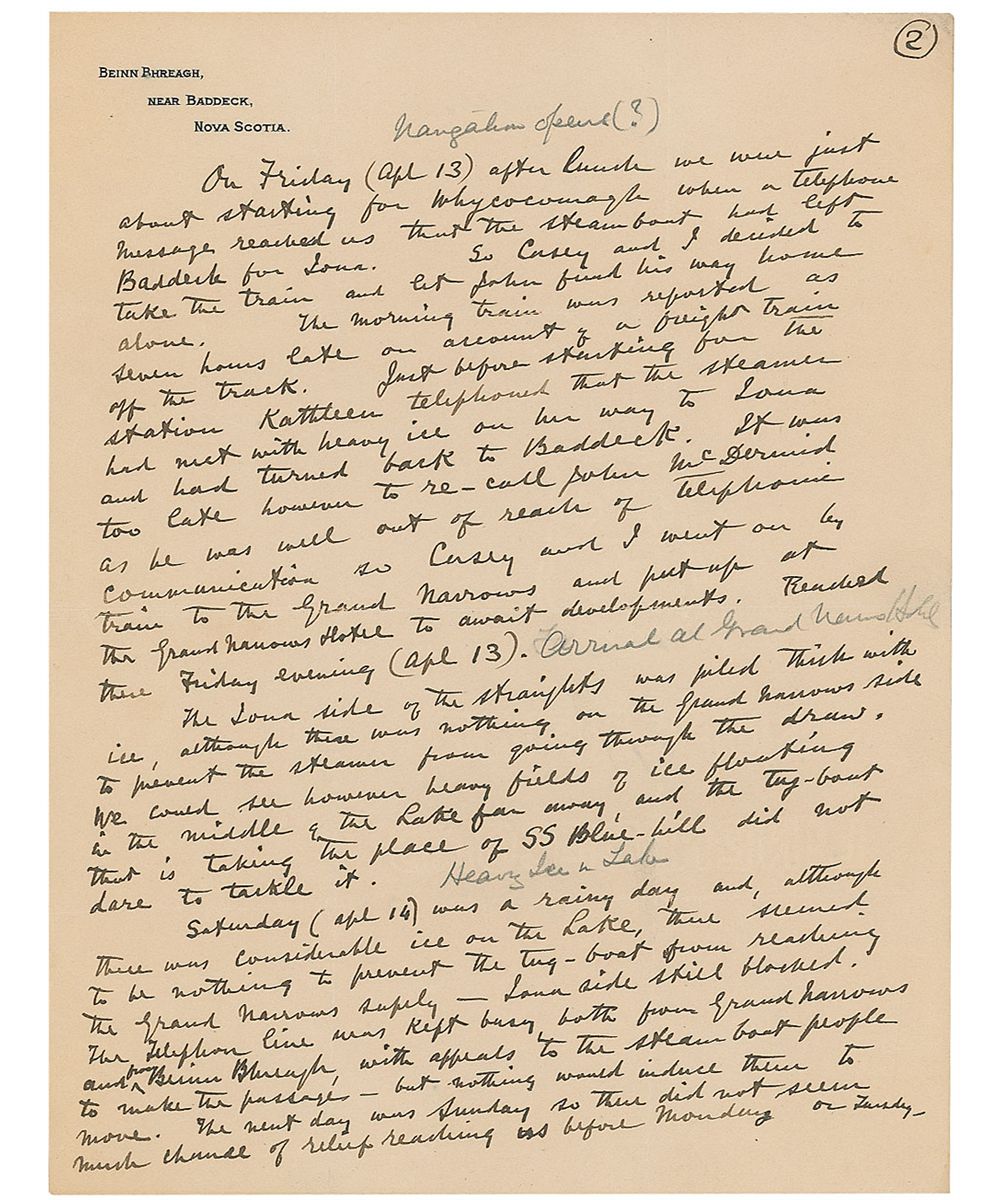 2
BEINN BHREAGH,
NEAR BADDECK,
NOVA SCOTIA.
Navigation opens (?)
On Friday (Apl 13) after lunch we were just
about starting for Whycocomagh when a telephone
message reached us that the steamboat had left
Baddeck for Iona. So Casey and I decided to
take the train and let John find his way home
alone. The morning train was reported as
seven hours late on account of a freight train
off the track. Just before starting for the
station Kathleen telephoned that the steamer
had met with heavy ice on her way to Iona
and had turned back to Baddeck. It was
too late however to re-call John McDermid
as he was well out of reach of telephonic
communication so Casey and I went on by
train to the Grand Narrows and put up at
the Grand Narrows Hotel to await developments. Reached
there Friday evening (Apl 13). Arrival at Grand Narrows Hotel
The Iona side of the straights was piled thick with
ice, although there was nothing on the Grand Narrows side
to prevent the steamer from going through the draw.
We could see however heavy fields of ice floating
in the middle of the Lake far away and the tug-boat
that is taking the place of SS Blue-hill did not
dare to tackle it. Heavy Ice in Lake
Saturday (Apl 14) was a rainy day and, although
there was considerable ice on the Lake, there seemed
to be nothing to prevent the tug-boat from reaching
the Grand Narrows safely — Iona side still blocked.
The Telephon line was kept busy both from Grand Narrows
and from Beinn Bhreagh, with appeals to the steamboat people
to make the passage — but nothing would induce them to
move. The next day was Sunday so there did not seem
much chance of relief reaching us before Monday or Tuesday—